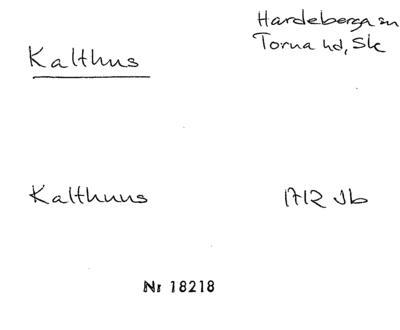 Hardeberga sn
Torna hd, Sk
Kalthus
Kalthuus 1712 Jb
Nr 18218